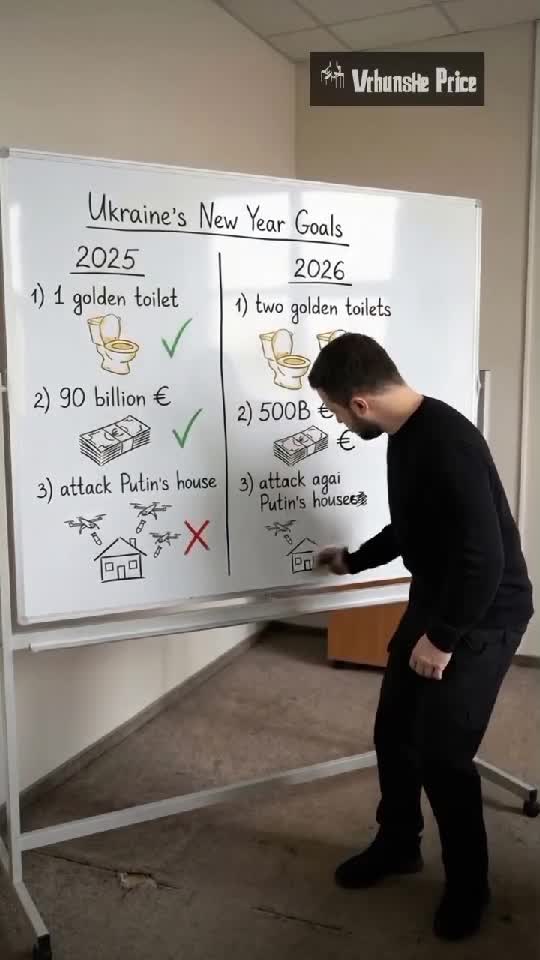 Vrhunske Price
Ukraine's New Year Goals
2025
1) 1 golden toilet
2) 90 billion €
3) attack Putin's house
2026
1) two golden toilets
2) 500B €
€
3) attack agai
Putin's house